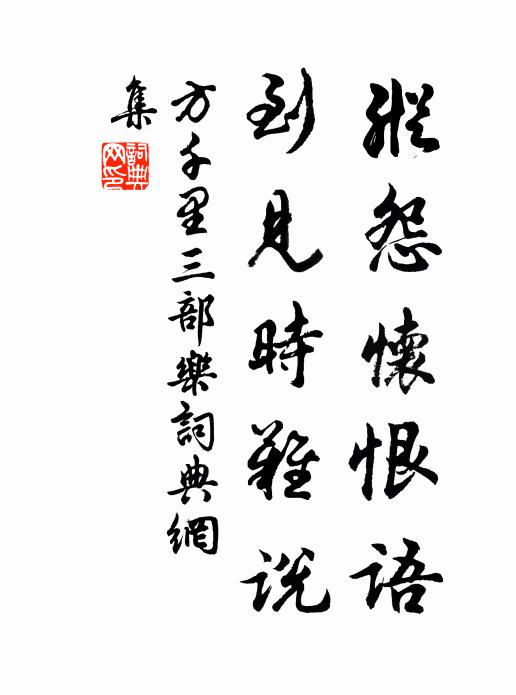 縱怨懷恨語
到見時難說
方千里三部樂詞典網
集
詞典網印